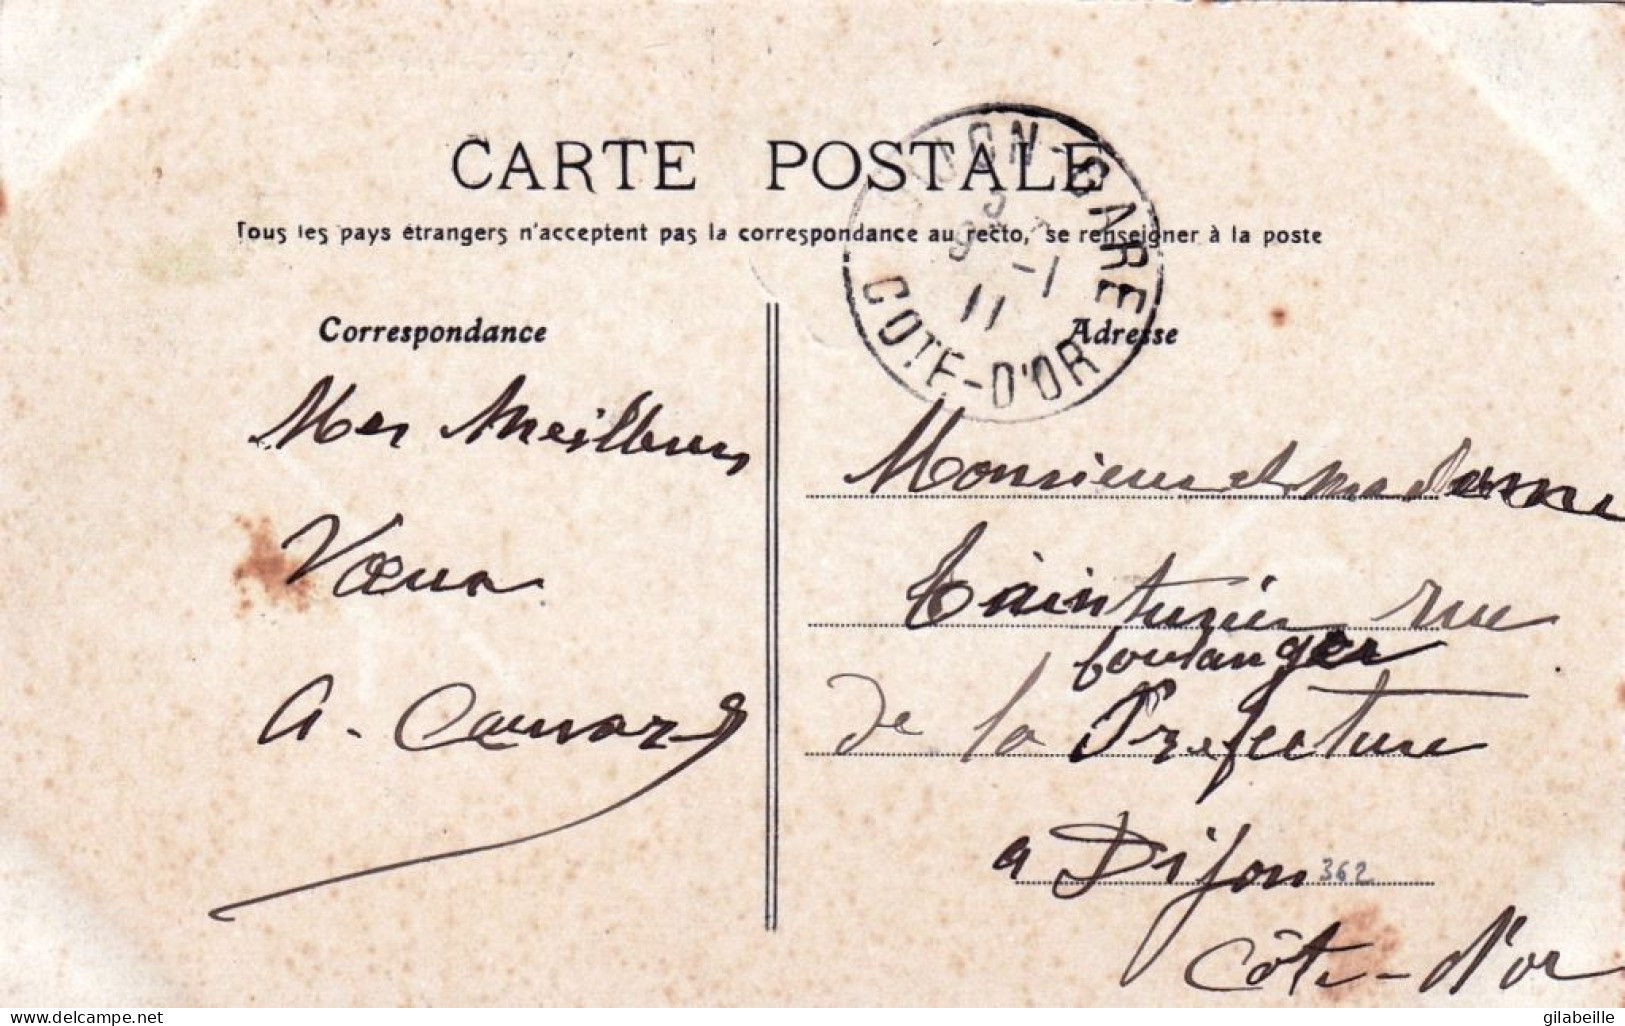 CARTE POSTALE
Tous les pays étrangers n'acceptent pas la correspondance au recto, se renseigner à la poste
Correspondance
Mes Meilleurs
Vœux
DIJON-GARE
9 -1
11
COTE-D'OR
Adresse
Monsieur et madame
rue
boulanger
de la Prefecture
a Dijon 362
Côte-d'or
delcampe.net
gilabeille